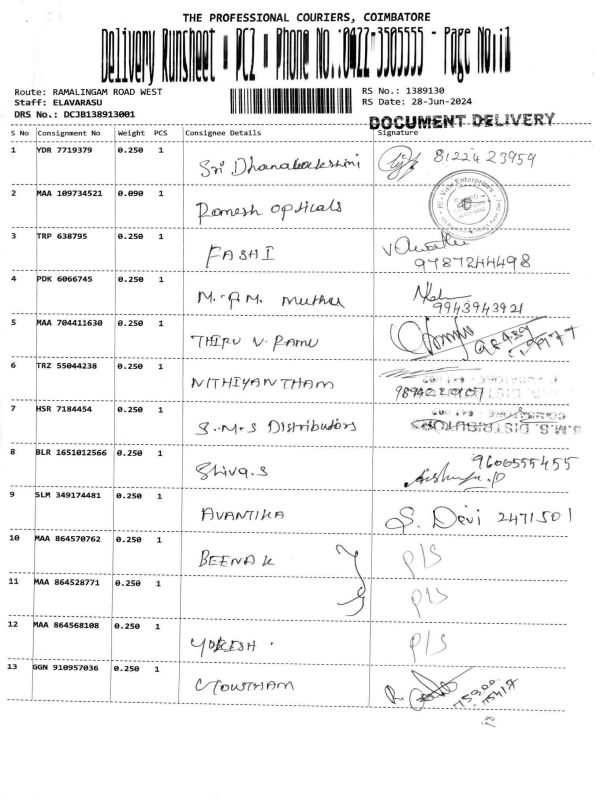 THE PROFESSIONAL COURIERS, COIMBATORE
Delivery Runsheet * PC2 * Phone No.:0422-3505555 - Page No.:1
Route: RAMALINGAM ROAD WEST RS No.: 1389130
Staff: ELAVARASU RS Date: 28-Jun-2024
DRS No.: DCJB138913001 DOCUMENT DELIVERY
S No Consignment No Weight PCS Consignee Details Signature
1 YDR 7719379 0.250 1 Sri Dhanabakshimi 81224 23959
2 MAA 109734521 0.090 1 Romesh opticals Hi-View Enterprises
3 TRP 638795 0.250 1 FASHI 9787244498
4 PDK 6066745 0.250 1 M. RM. muthu 9943943921
5 MAA 704411630 0.250 1 THIRU V. RAMU
6 TRZ 55044238 0.250 1 NITHIYANTHAM
7 HSR 7184454 0.250 1 S.M.S Distributors S.M.S. DISTRIBUTORS
8 BLR 1651012566 0.250 1 Shiva.S 9600555455
9 SLM 349174481 0.250 1 AVANTIKA S. Devi 2471501
10 MAA 864570762 0.250 1 BEENA K P/S
11 MAA 864528771 0.250 1 P/S
12 MAA 864568108 0.250 1 YOKESH. P/S
13 GGN 910957036 0.250 1 GOWTHAM